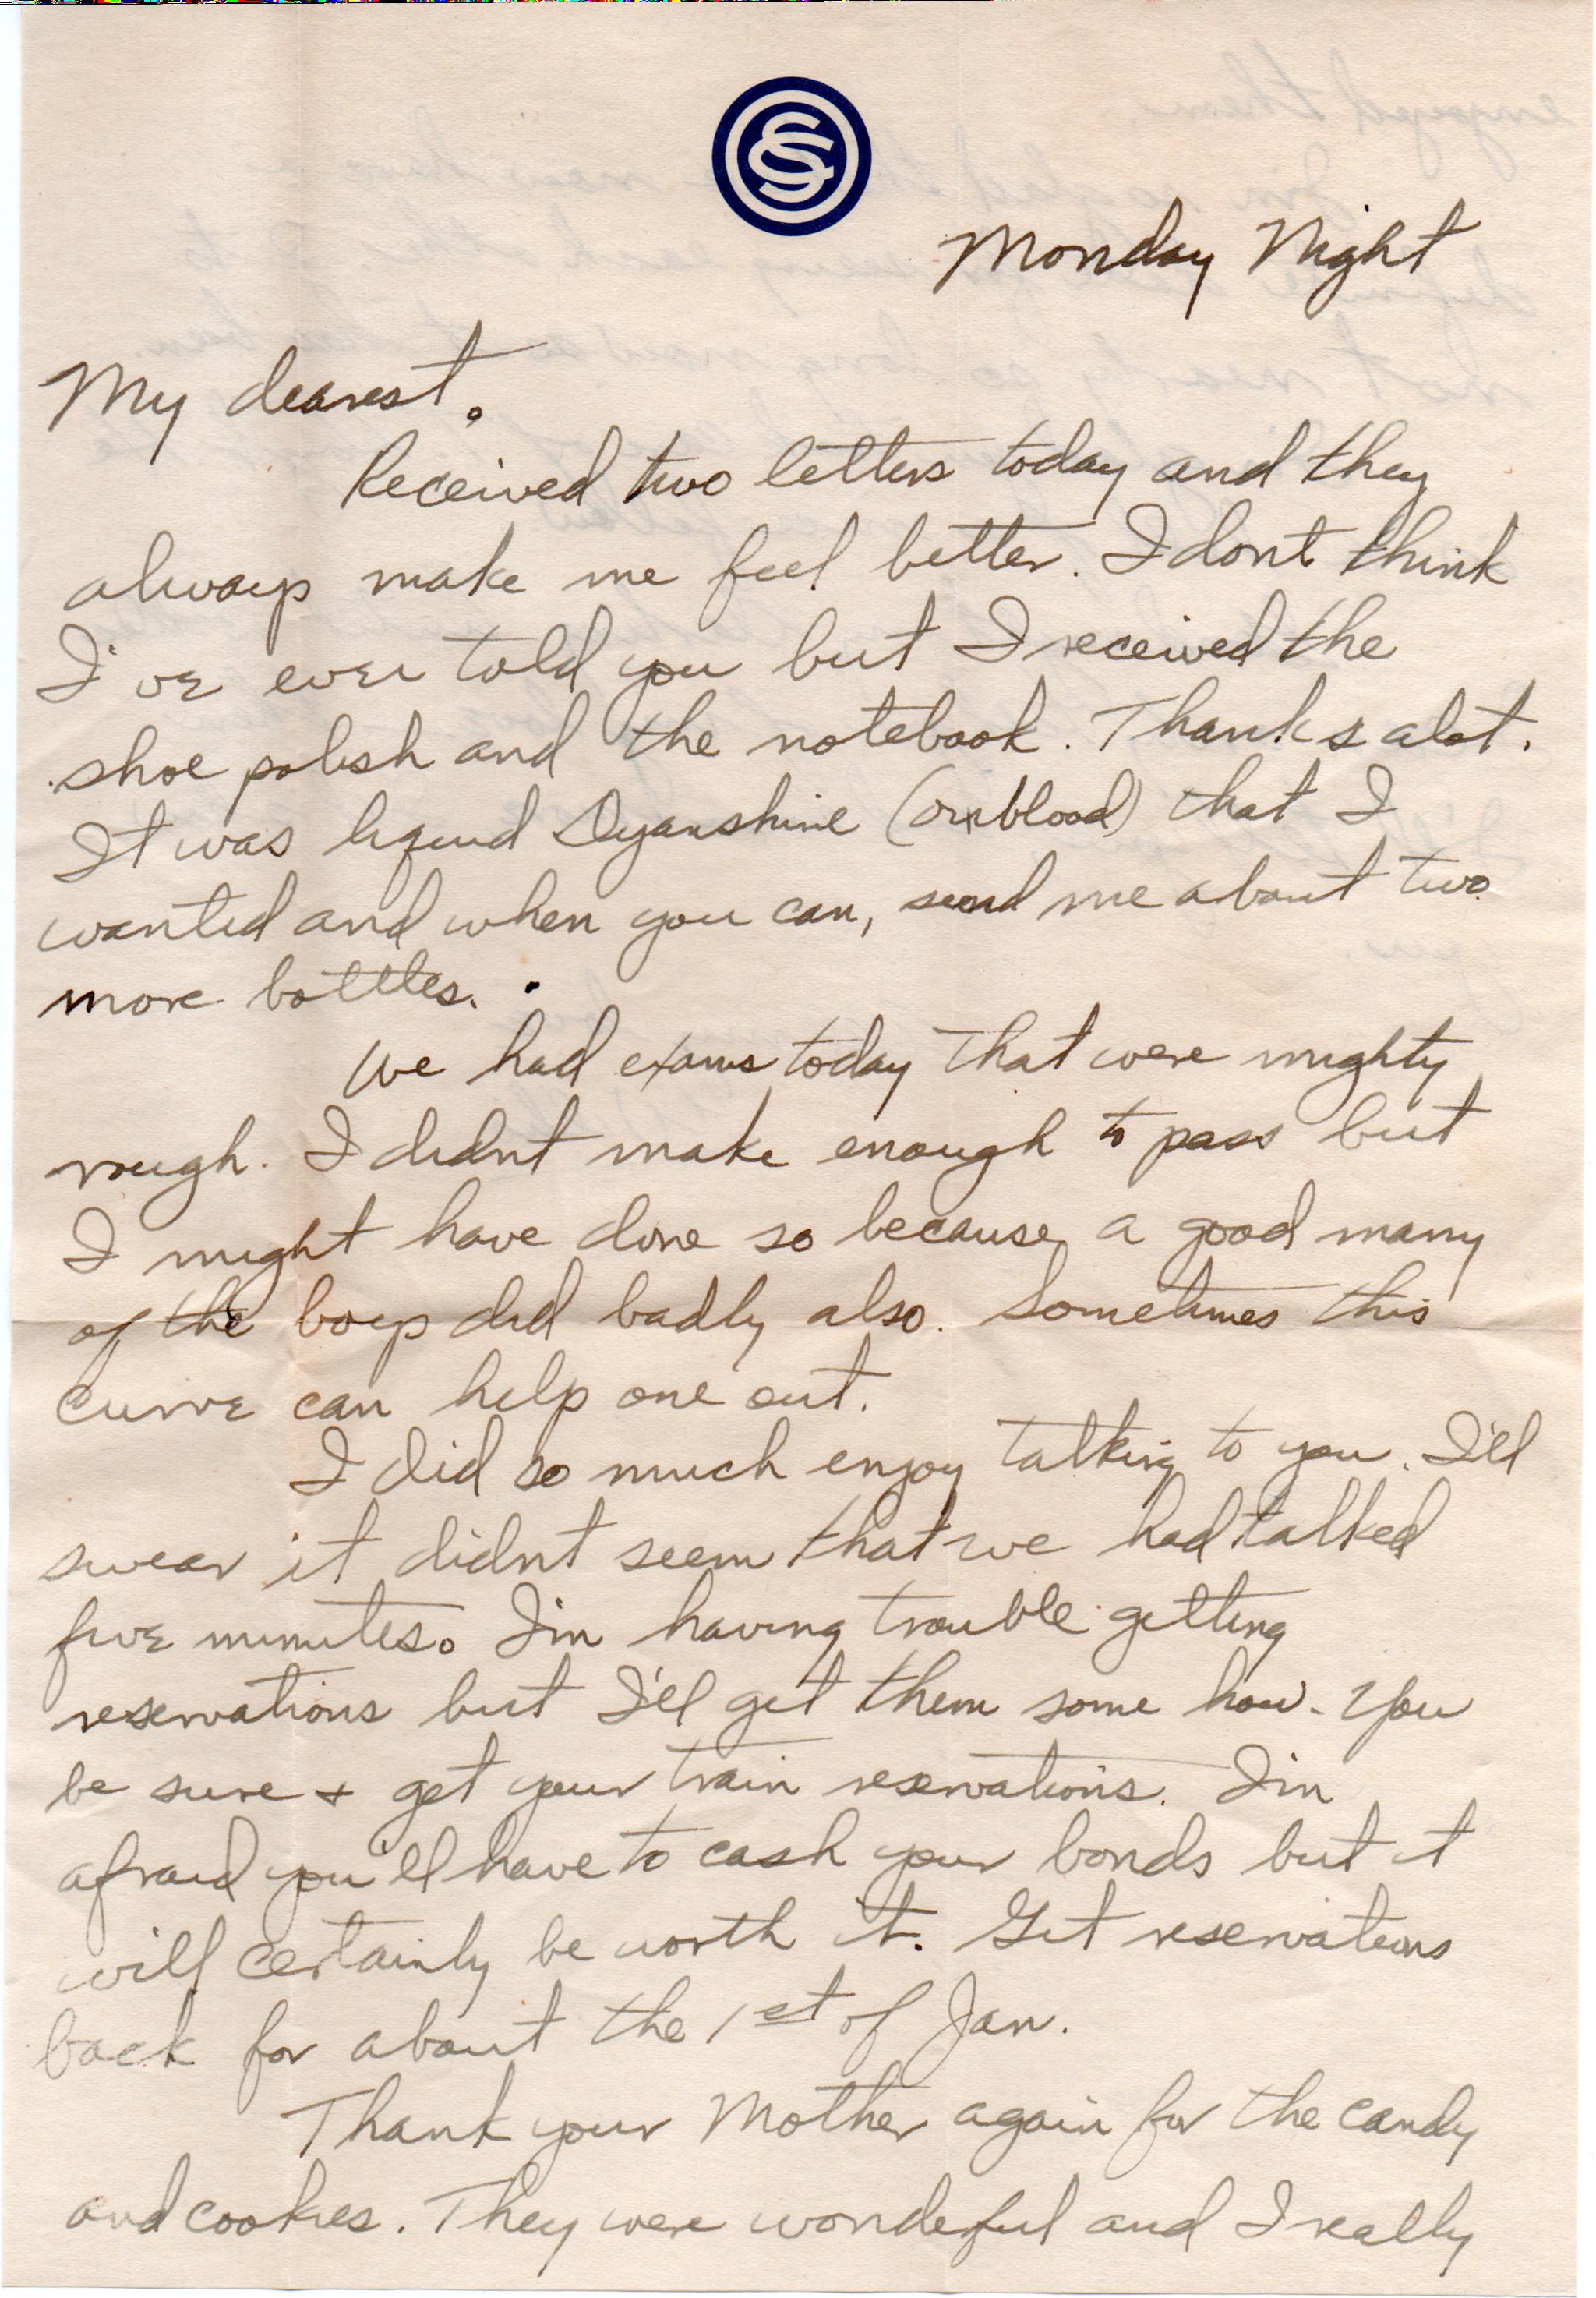 OCS
Monday Night
My dearest,
Received two letters today and they
always make me feel better. I dont think
I've ever told you but I received the
shoe polish and the notebook. Thanks alot.
It was liquid Dyanshine (oxblood) that I
wanted and when you can, send me about two
more bottles.
We had exams today that were mighty
rough. I didnt make enough to pass but
I might have done so because a good many
of the boys did badly also. Sometimes this
curve can help one out.
I did so much enjoy talking to you. I'll
swear it didnt seem that we had talked
five minutes. I'm having trouble getting
reservations but I'll get them some how. You
be sure + get your train reservations. I'm
afraid you'll have to cash your bonds but it
will certainly be worth it. Get reservations
back for about the 1st of Jan.
Thank your Mother again for the candy
and cookies. They were wonderful and I really